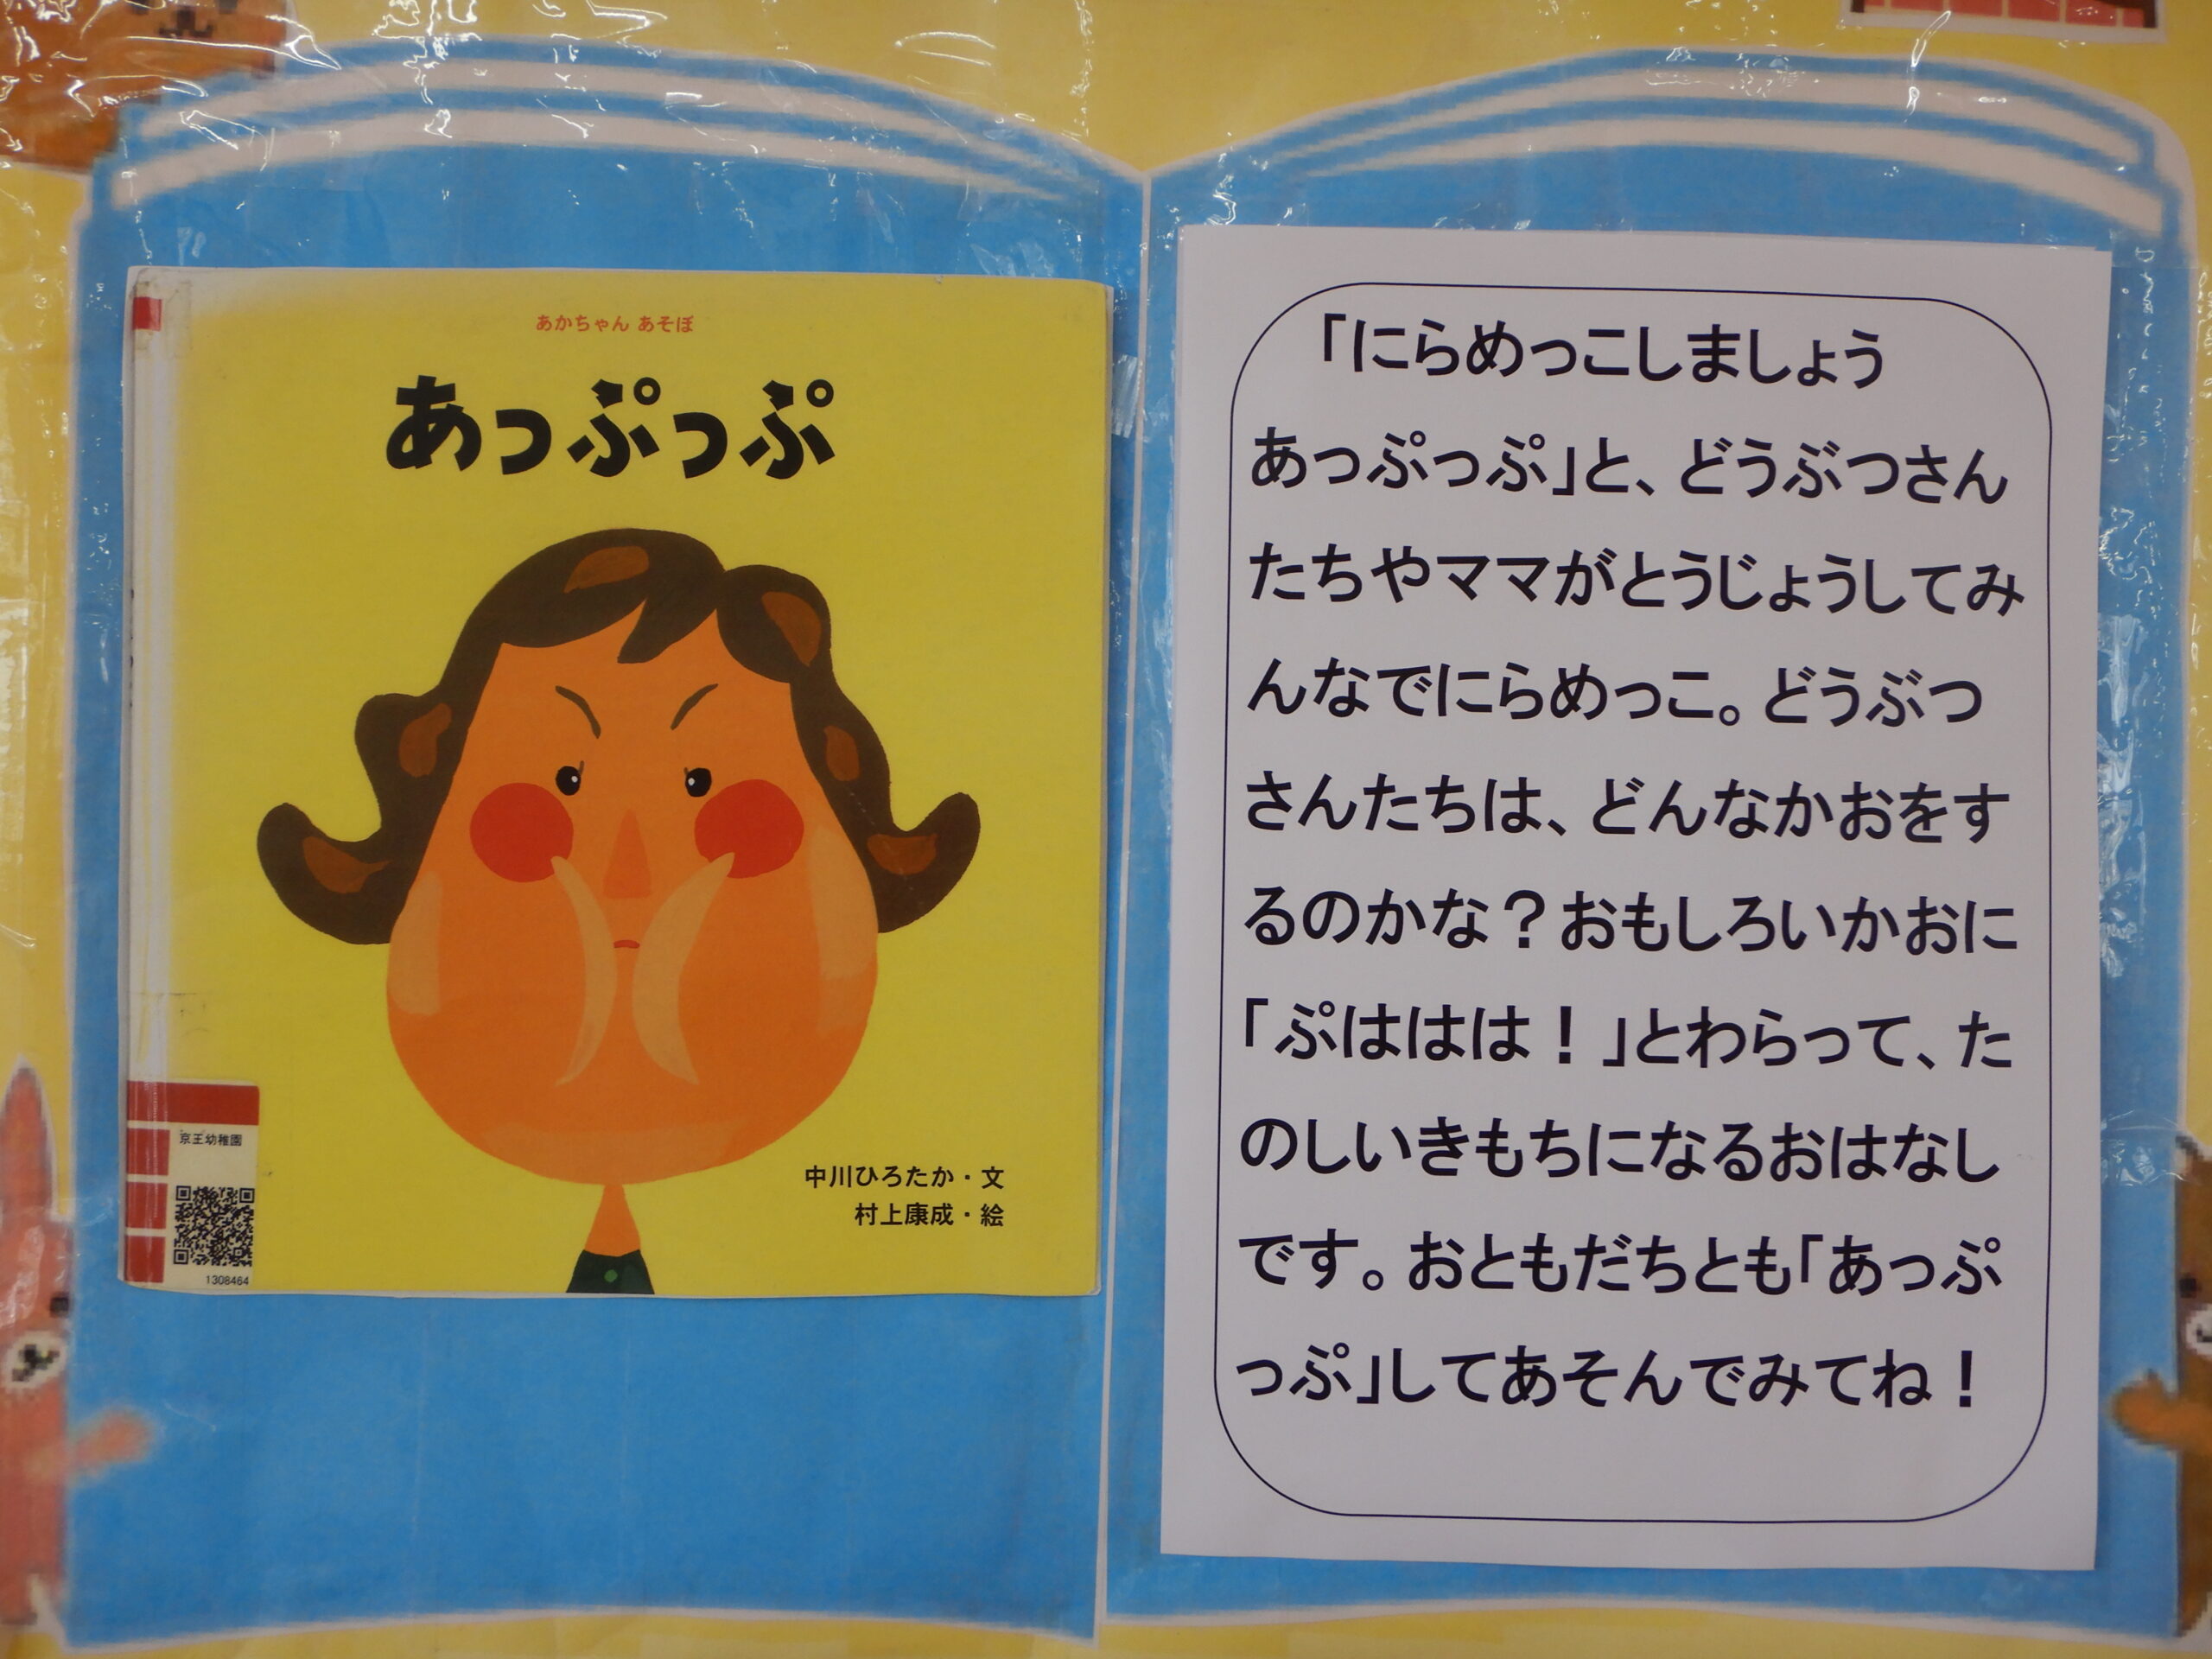 あかちゃん あそぼ
あっぷっぷ
中川ひろたか・文
村上康成・絵
京王幼稚園
1308464
「にらめっこしましょう
あっぷっぷ」と、どうぶつさん
たちやママがとうじょうしてみ
んなでにらめっこ。どうぶつ
さんたちは、どんなかおをす
るのかな？おもしろいかおに
「ぷははは！」とわらって、た
のしいきもちになるおはなし
です。おともだちとも「あっぷ
っぷ」してあそんでみてね！